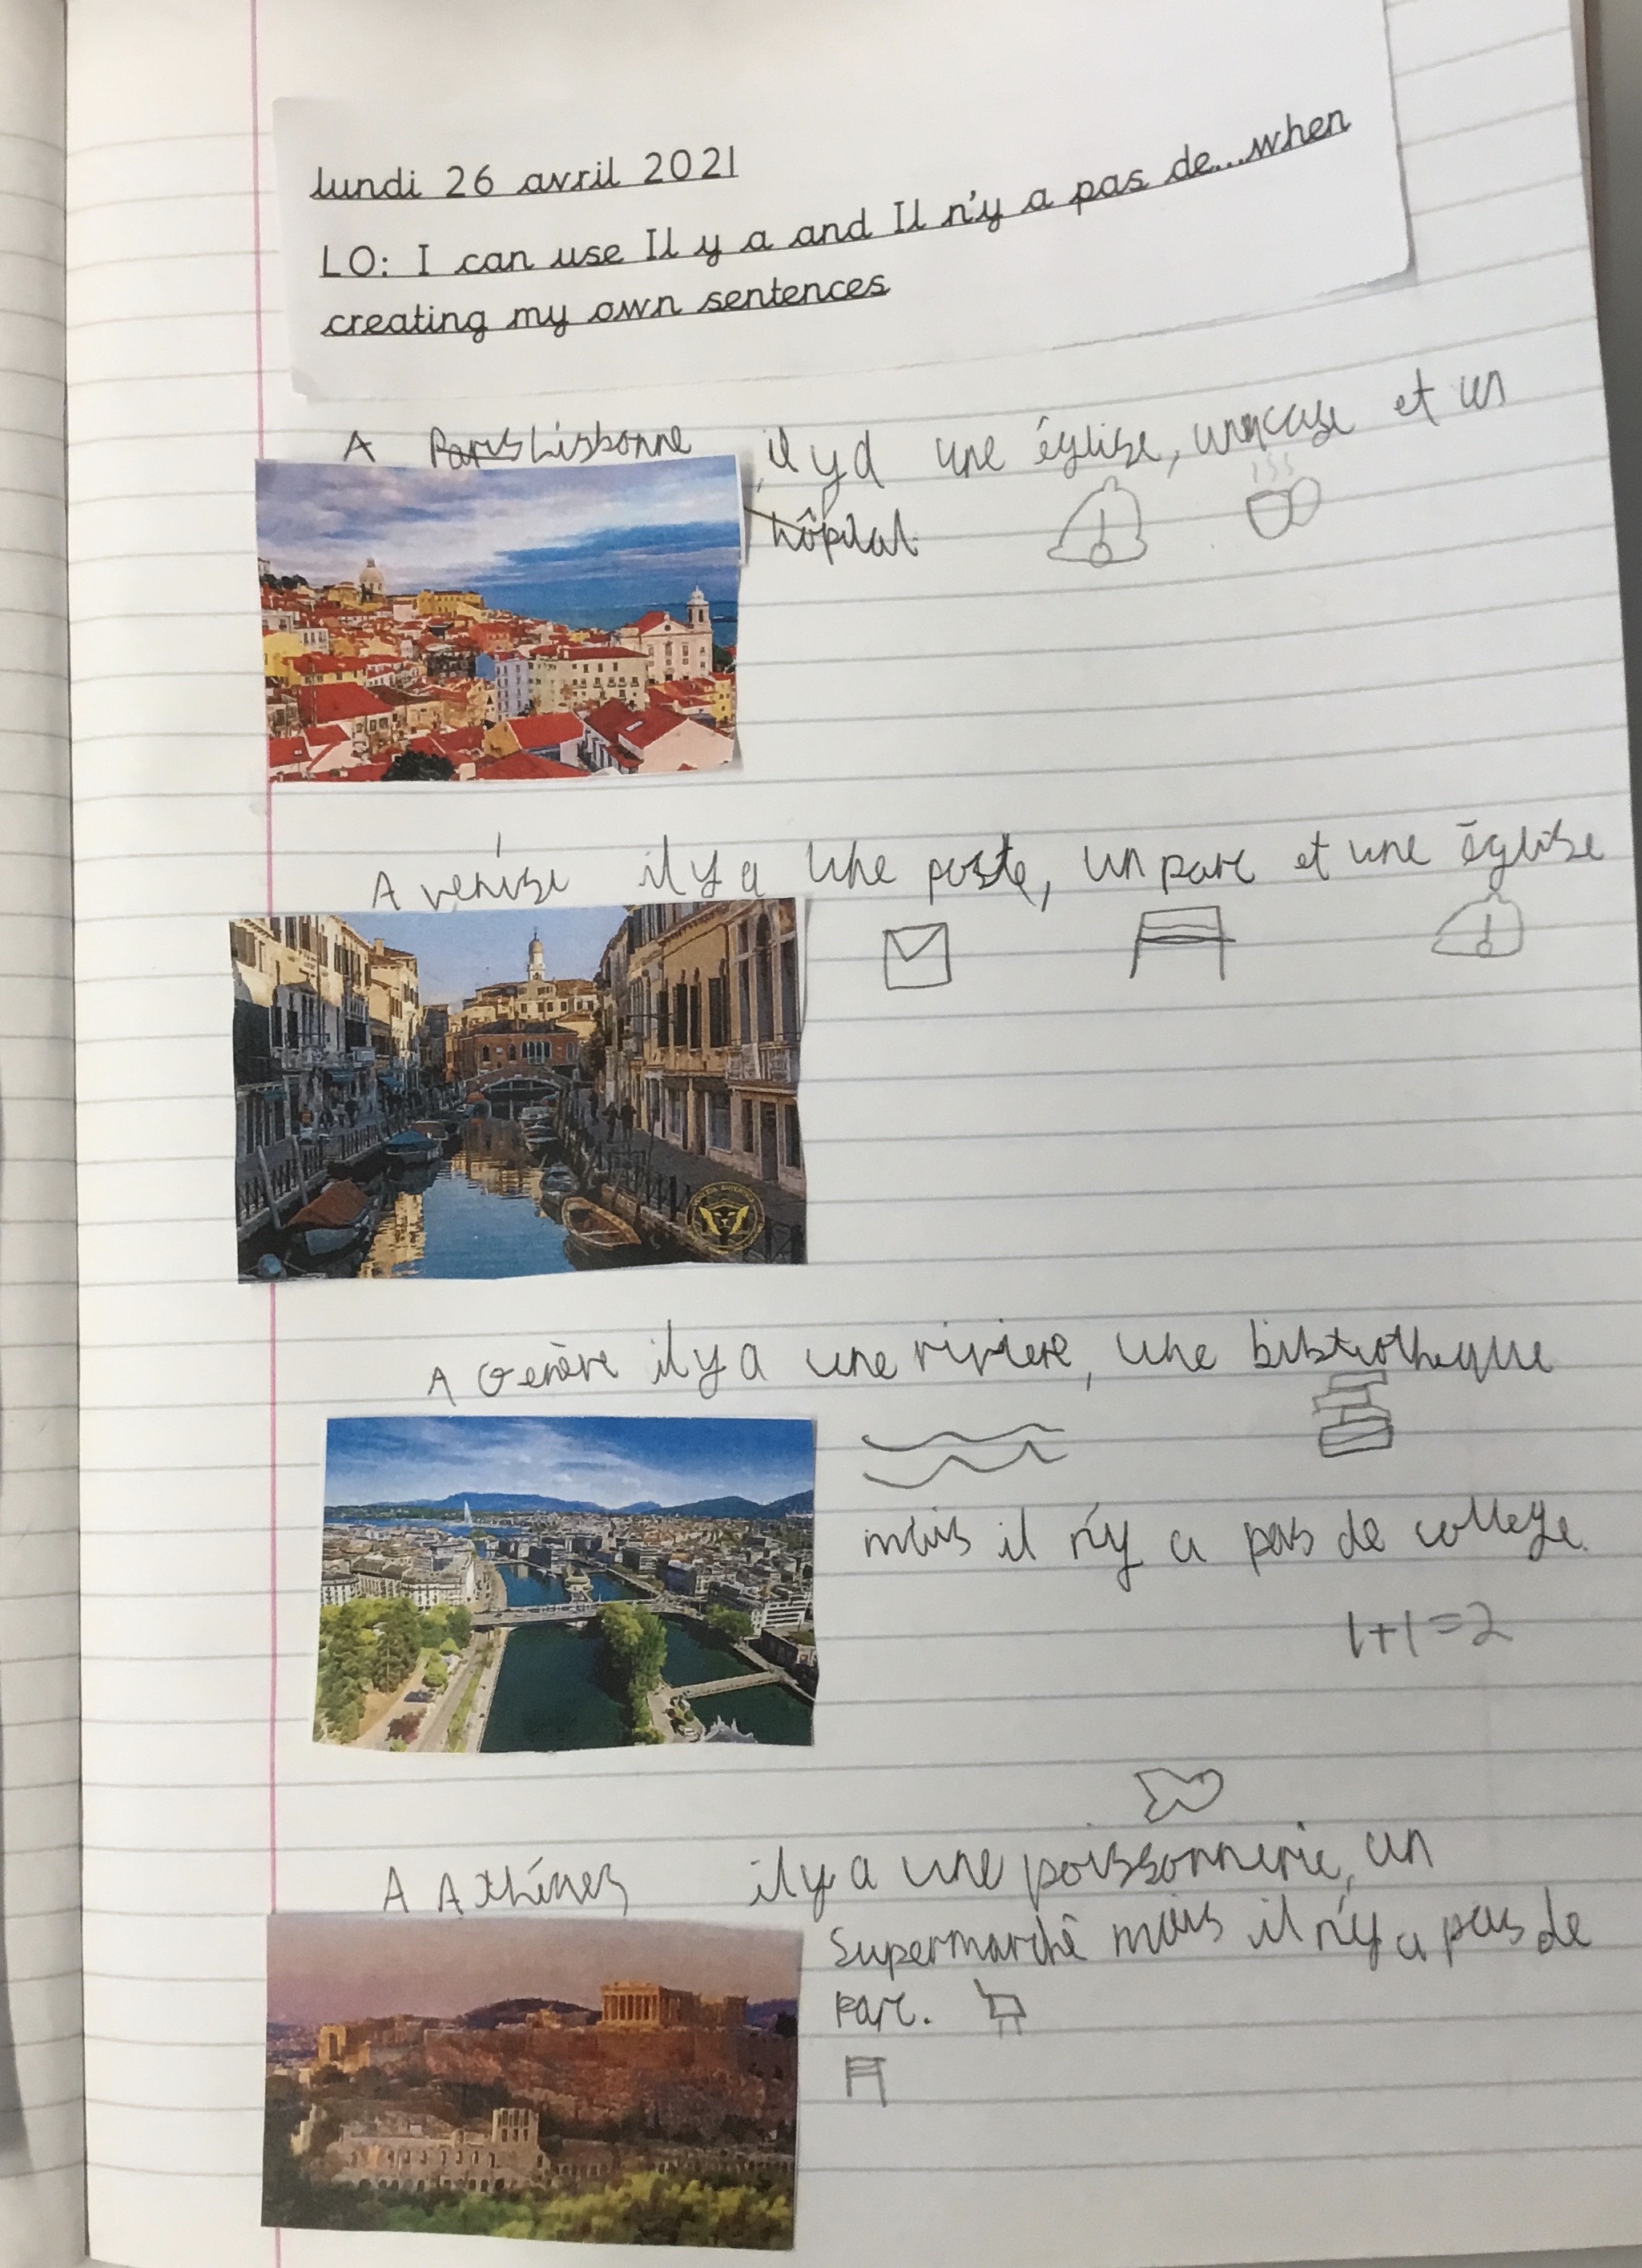 lundi 26 avril 2021
LO: I can use Il y a and Il n'y a pas de...when
creating my own sentences
A Paris Lisbonne il y a une église, un et un
hôpital.
A venise il y a une poste, un parc et une église
A Genève il y a une riviere, une bibliotheque
mais il n'y a pas de college.
1+1=2
A Athénes il y a une poissonnerie, un
Supermarché mais il n'y a pas de
parc.